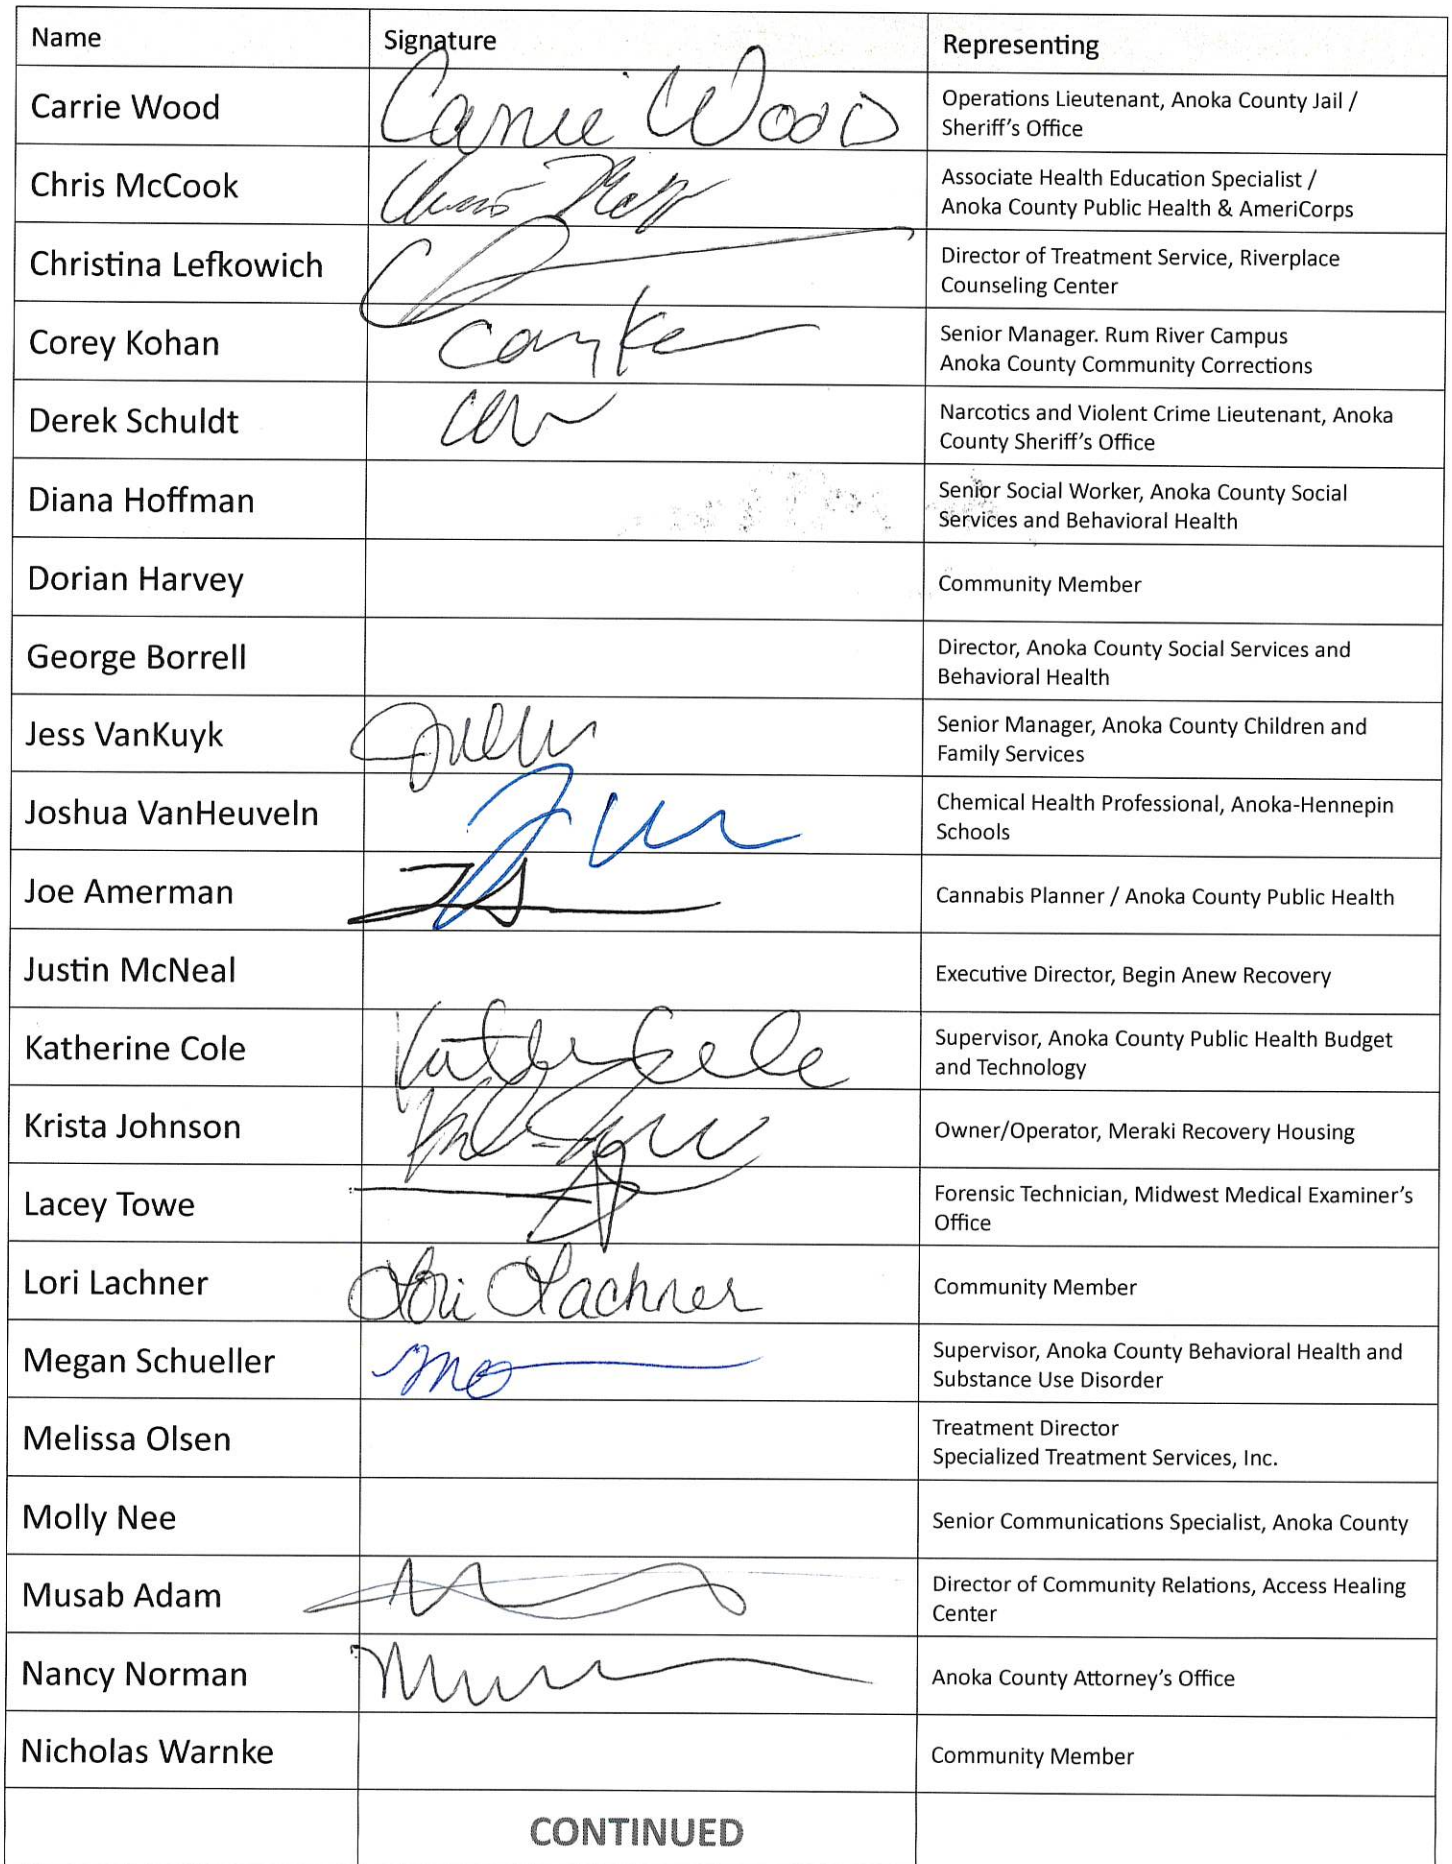 Name Signature Representing
Carrie Wood Carrie Wood Operations Lieutenant, Anoka County Jail /
Sheriff's Office
Chris McCook Associate Health Education Specialist /
Anoka County Public Health & AmeriCorps
Christina Lefkowich Director of Treatment Service, Riverplace
Counseling Center
Corey Kohan Senior Manager. Rum River Campus
Anoka County Community Corrections
Derek Schuldt Narcotics and Violent Crime Lieutenant, Anoka
County Sheriff's Office
Diana Hoffman Senior Social Worker, Anoka County Social
Services and Behavioral Health
Dorian Harvey Community Member
George Borrell Director, Anoka County Social Services and
Behavioral Health
Jess VanKuyk Senior Manager, Anoka County Children and
Family Services
Joshua VanHeuveln Chemical Health Professional, Anoka-Hennepin
Schools
Joe Amerman Cannabis Planner / Anoka County Public Health
Justin McNeal Executive Director, Begin Anew Recovery
Katherine Cole Supervisor, Anoka County Public Health Budget
and Technology
Krista Johnson Owner/Operator, Meraki Recovery Housing
Lacey Towe Forensic Technician, Midwest Medical Examiner's
Office
Lori Lachner Lori Lachner Community Member
Megan Schueller Supervisor, Anoka County Behavioral Health and
Substance Use Disorder
Melissa Olsen Treatment Director
Specialized Treatment Services, Inc.
Molly Nee Senior Communications Specialist, Anoka County
Musab Adam Director of Community Relations, Access Healing
Center
Nancy Norman Anoka County Attorney's Office
Nicholas Warnke Community Member
CONTINUED